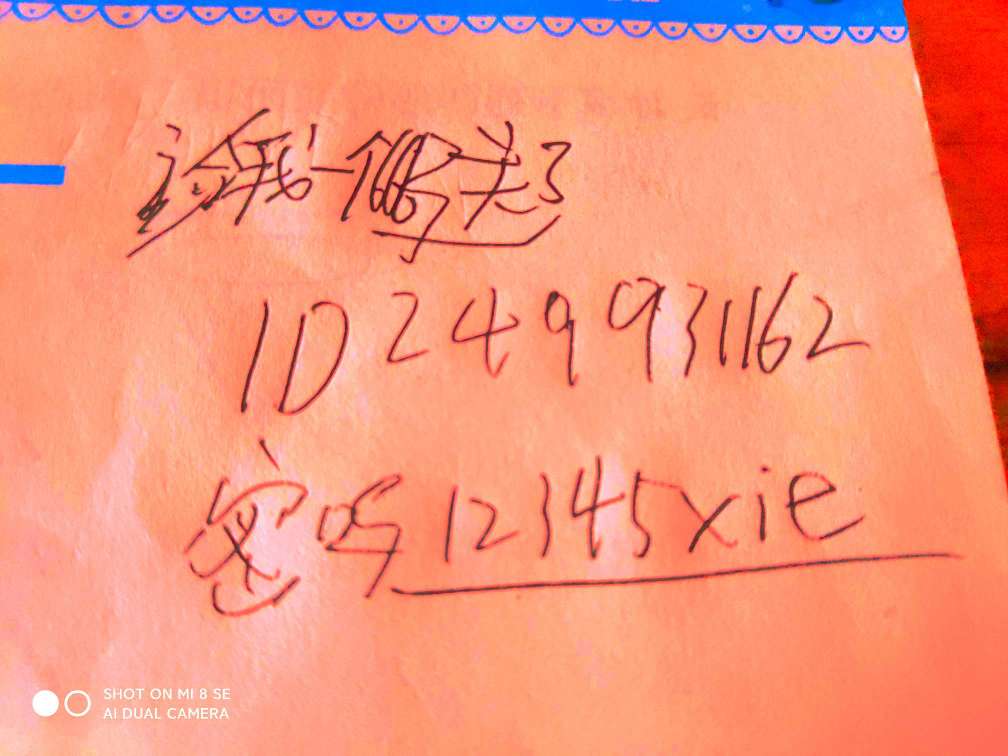 我一个
ID 249931162
密码 12345xie
SHOT ON MI 8 SE
AI DUAL CAMERA